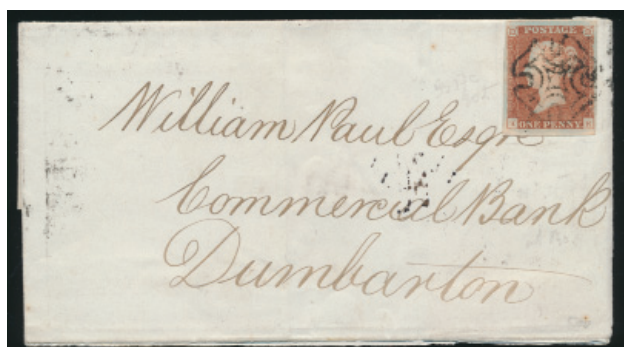 POSTAGE
ONE PENNY
William Paul Esqre
Commercial Bank
Dumbarton